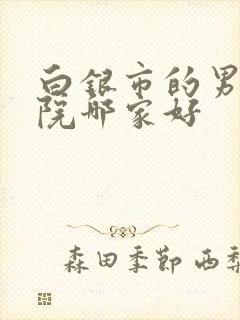 白银市的男
院哪家好
森田季节 西